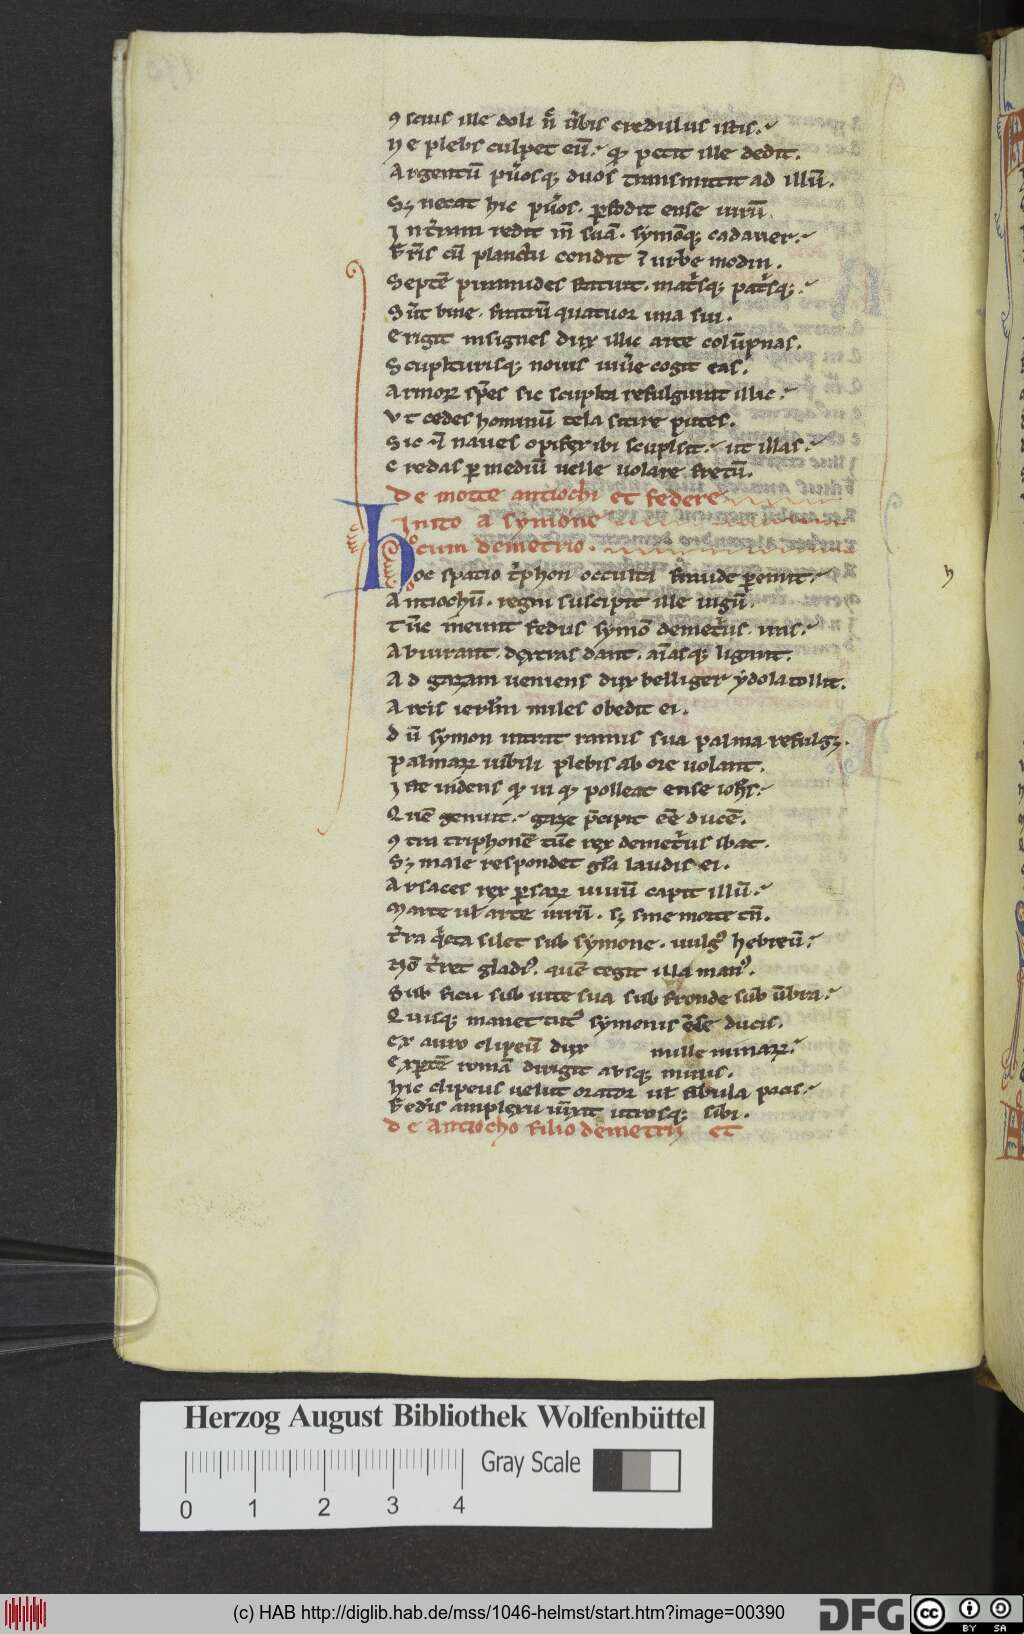 ꝯscius ille doli n̄ uerbis credulus istis.
Ne plebs culpet eū. qͥ petit ille dedit.
Argentū pu̓osqꝫ duos transmittit ad illū.
Sꝫ necat hic pu̓os. ꝑfodit ense uirū.
In t̓ram redit īn suā. symōqꝫ cadauer.
Fr̄is cū planctu condit ī urbe modin.
Septē piramides statuit. mat̓sqꝫ pat̓sqꝫ.
Sūt bine. fratrū quatuor una sui.
Erigit insignes dux illic arte colūpnas.
Sculpturisqꝫ nouis uiu̓e cogit eas.
Armoꝝ sp̄es sic sculpta refulgurat illic.
Vt cedes hominū tela sitire putes.
Sic ⁊ naues opifex ibi sculpsit. ut illas.
Credas ꝑ mediū uelle uolare fretū.
De morte antiochi et federe
Inito a symone
cum demetrio.
Hoc spatio t̓phon occulta fraude ꝑemit.
Antiochū. regni suscipit ille iugū.
Tūc ineunt fedus symō demet̓us. iras.
Abiurant. dextras dant. aīasqꝫ ligant.
Ad gazam ueniens dux belliger ydola tollit.
Arcis ierlm̄ miles obedit ei.
Dū symon intrat ramis sua palma refulgꝫ.
Palmaꝝ uībili plebis ab ore uolant.
Iste uidens qͥ ui qͥ polleat ense ioh̄s.
Quē genuit. gaze p̄cipit eē ducē.
ꝯtra triphonē tūc rex demet̓us ibat.
Sꝫ male respondet gl̄a laudis ei.
Arsaces rex ꝑsaꝝ uiuū capit illū.
Marte ul̄ arte uirū. sꝫ sine morte tn̄.
T̓ra qͥeta silet sub symone. uulgꝰ hebreū.
Nō t̓ret gladiꝰ. quē tegit illa manꝰ.
Sub ficu sub uite sua sub fronde sub ūbra.
Quisqꝫ manet tutꝰ symonis ense ducis.
Ex auro clipeū dux mille minaꝝ.
Exꝑtē romā dirigit absqꝫ minis.
Hic clipeus uelut orator ul̄ fibula pacis.
Fed̓is amplexu iūxit utrosqꝫ sibi.
De Antiocho filio demetrii et
h
Herzog August Bibliothek Wolfenbüttel
Gray Scale
0 1 2 3 4
(c) HAB http://diglib.hab.de/mss/1046-helmst/start.htm?image=00390
DFG
cc BY SA